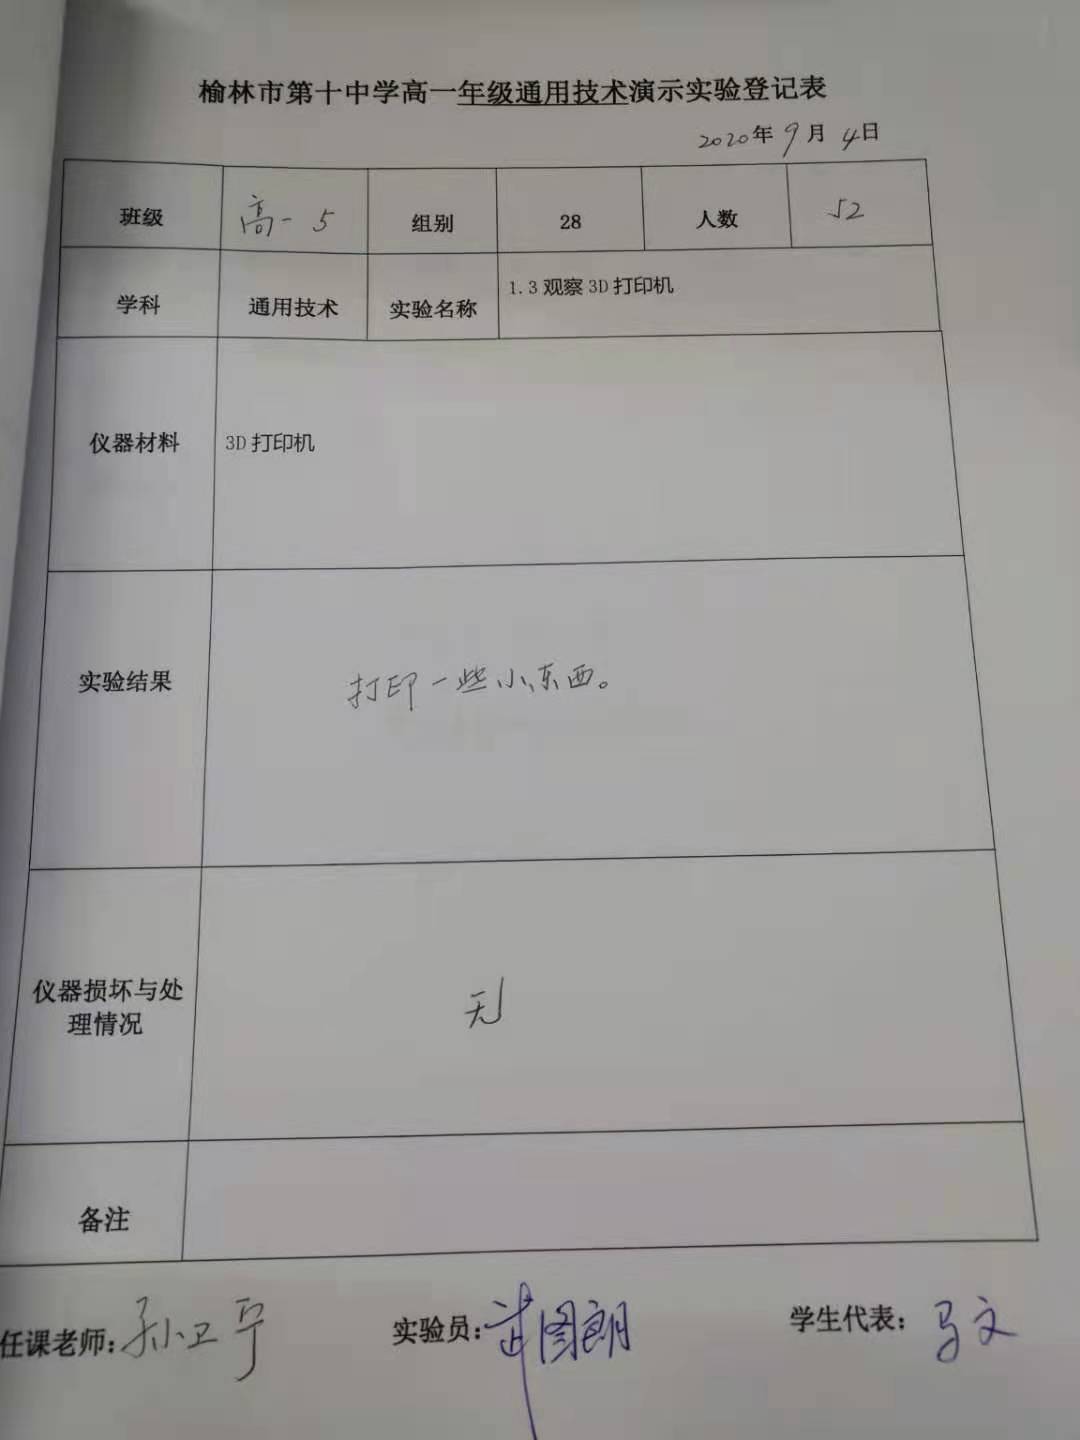 榆林市第十中学高一年级通用技术演示实验登记表
2020年9月4日
班级 高一5 组别 28 人数 52
学科 通用技术 实验名称 1.3观察3D打印机
仪器材料 3D打印机
实验结果 打印一些小东西。
仪器损坏与处
理情况 无
备注
任课老师:孙卫宁 实验员:图朗 学生代表:马文